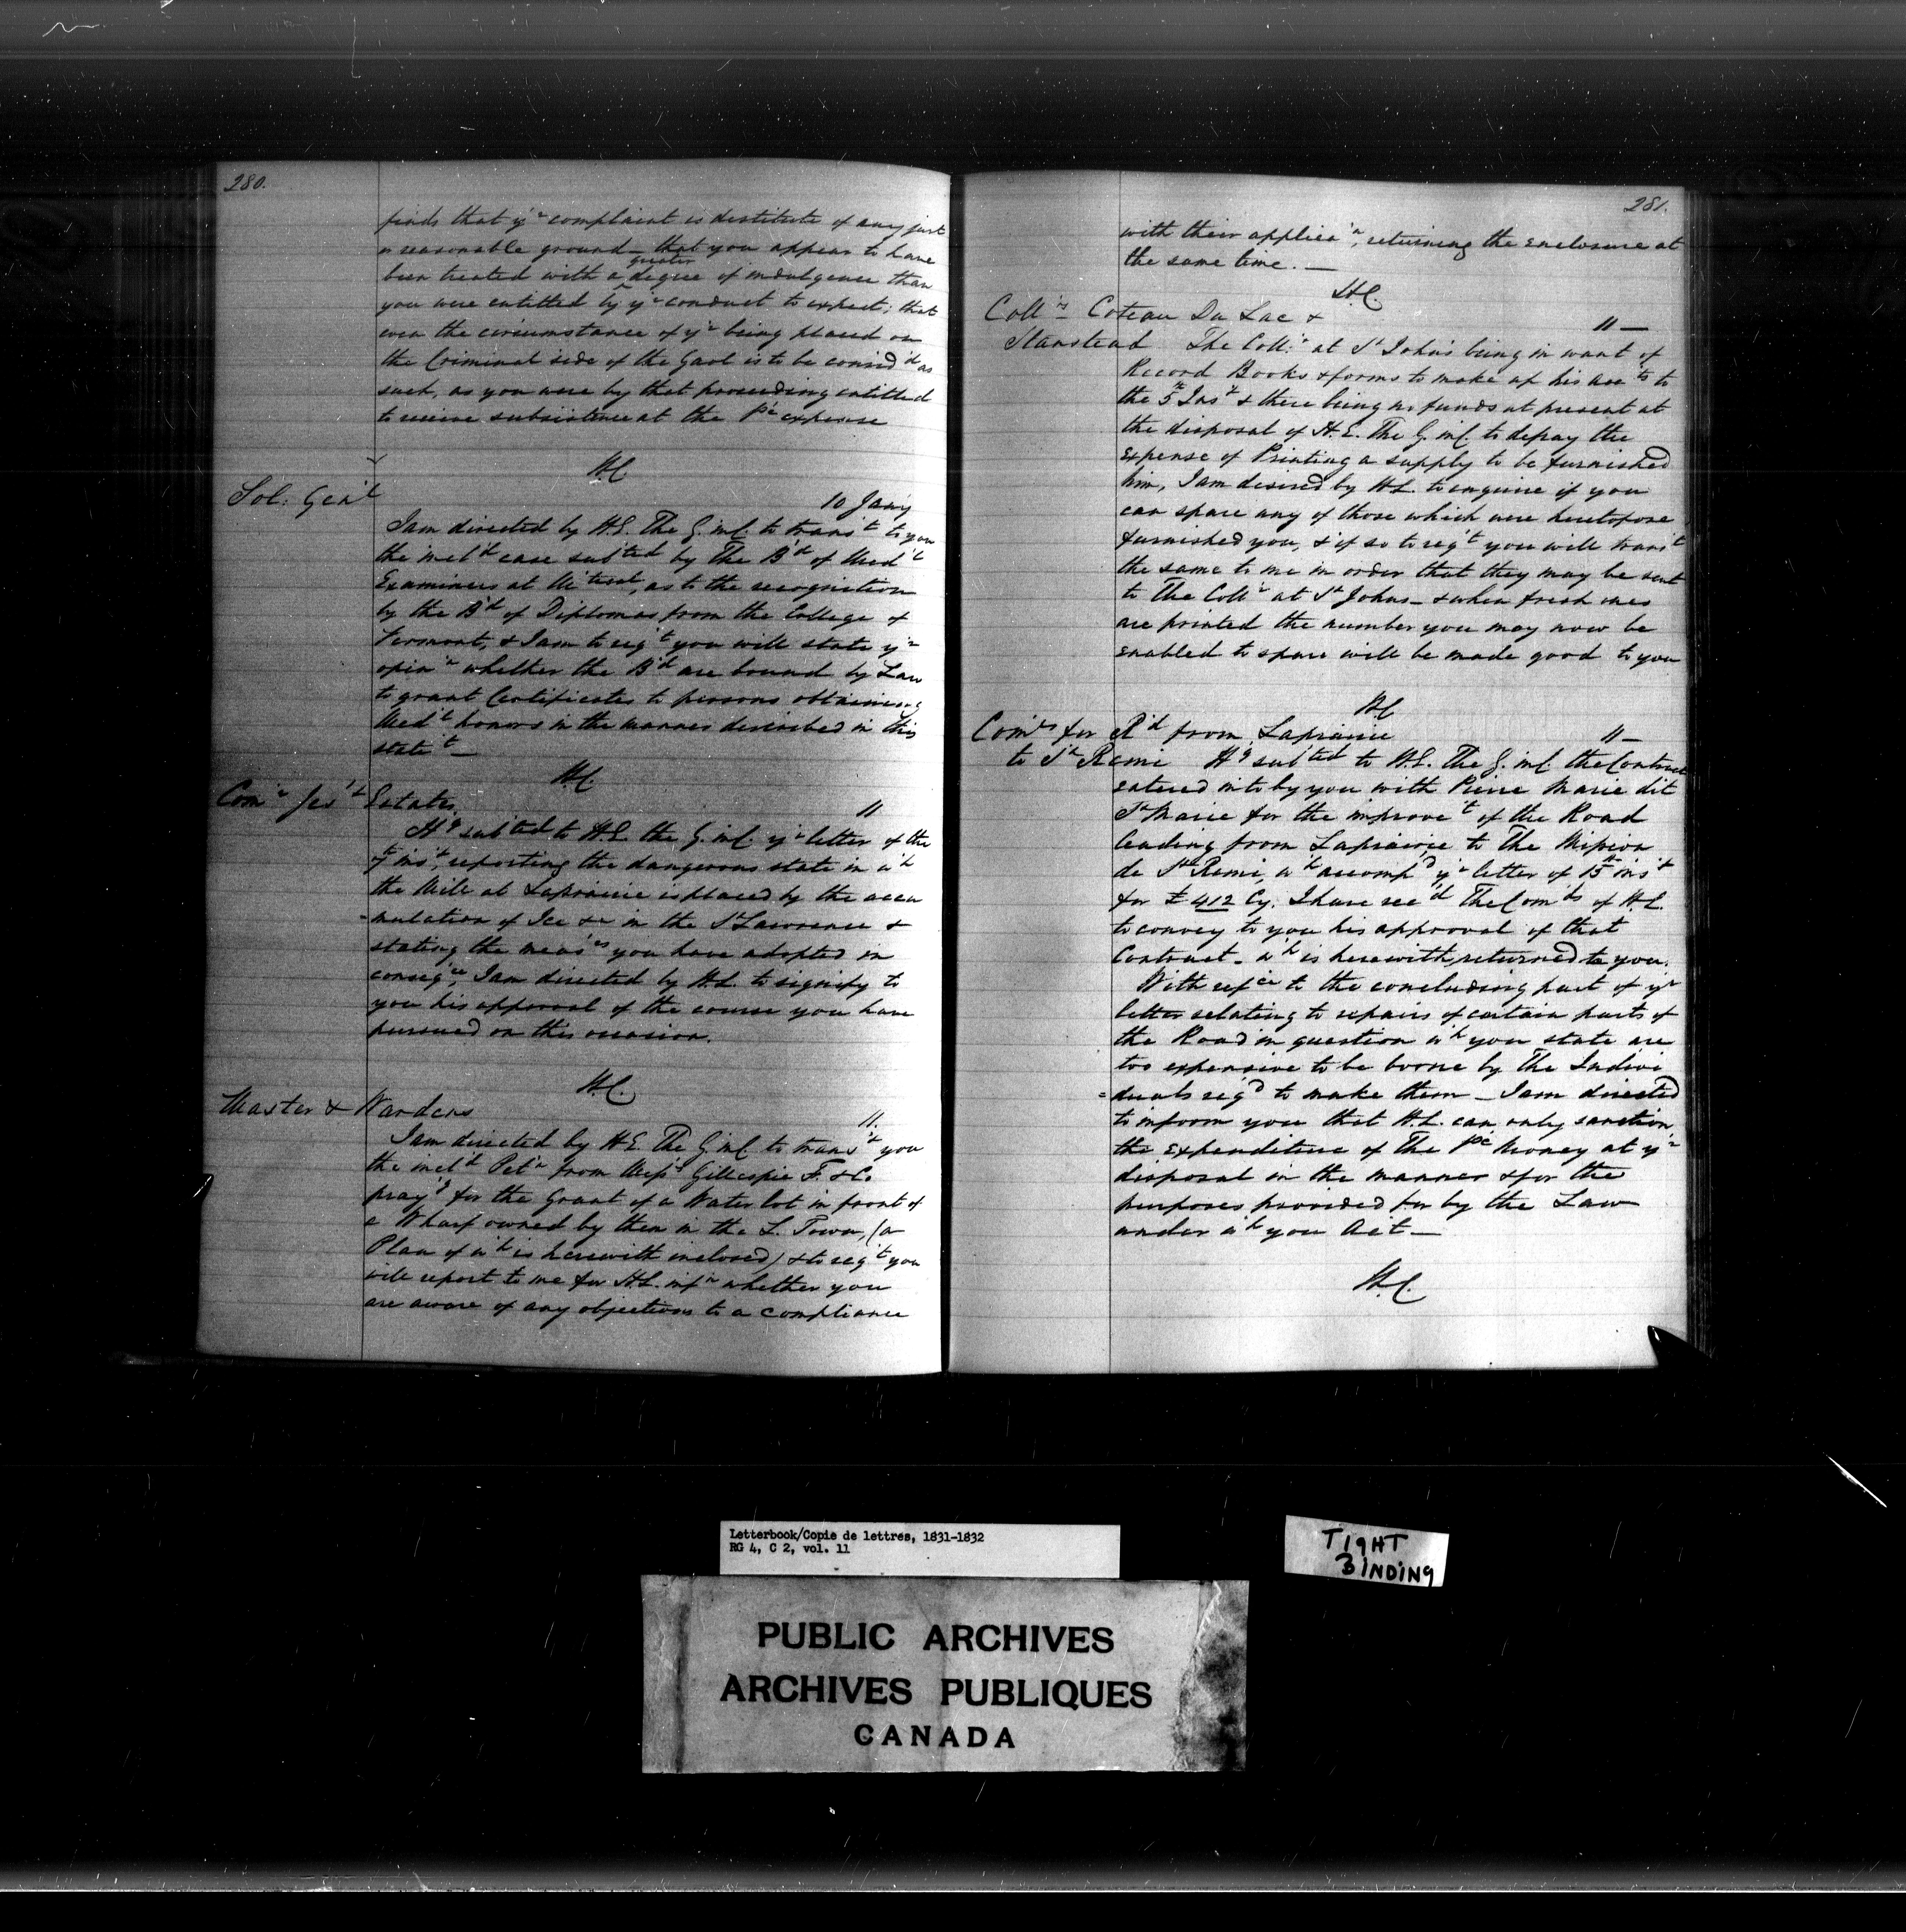 280.
finds that yr complaint is destitute of any just
or reasonable ground – that you appear to have
been treated with a greater degree of indulgence than
you were entitled by yr conduct to expect; that
even the circumstance of yr being placed on
the Criminal side of the Gaol is to be consid'd as
such, as you were by that proceeding entitled
to receive subsistence at the Pc expense
H.C.
Sol: Gen'l
10 Jan'y
I am directed by H.E. The G. in C. to trans't to you
the incl'd case sub'ted by The B'd of Med'l
Examiners at M'treal, as to the recognition
by the B'd of Diplomas from the College of
Vermont, & I am to req't you will state yr
opin'n whether the B'd are bound by Law
to grant Certificates to persons obtaining
Med'l honors in the manner described in this
state't —
H.C.
Com'r Jes'ts Estates
11
H'g sub'ted to H.E. the G. in C. yr letter of the
7th ins't, reporting the dangerous state in w'h
the Mill at Laprairie is placed by the accu
=mulation of Ice &c in the St Lawrence &
stating the meas'es you have adopted in
conseq'ce, I am directed by H.E. to signify to
you his approval of the course you have
pursued on this occasion.
H.C.
Master & Wardens
11.
I am directed by H.E. The G. in C. to trans't you
the incl'd Pet'n from Mess'rs Gillespie F. & Co.
pray'g for the Grant of a Water lot in front of
a Wharf owned by them in the L. Town, (a
Plan of w'h is herewith enclosed) & to req't you
will report to me for H.E. inf'n whether you
are aware of any objections to a compliance
281.
with their applica'n, returning the enclosure at
the same time. —
H.C.
Coll'rs Coteau Du Lac &
11 —
Stanstead The Coll'r at St Johns being in want of
Record Books & forms to make up his acc'ts to
the 5th Ins't & there being no funds at present at
the disposal of H.E. The G. in C. to defray the
expense of Printing a supply to be furnished
him, I am desired by H.E. to enquire if you
can spare any of those which were heretofore
furnished you, & if so to req't you will trans't
the same to me in order that they may be sent
to The Coll'r at St Johns – & when fresh ones
are printed the number you may now be
enabled to spare will be made good to you
H.C.
Com'rs for R'd from Laprairie
11 —
to St Remi H'g sub'ted to H.E. The G. in C. the Contract
entered into by you with Pierre Marie dit
St Marie for the improve't of the Road
leading from Laprairie to The Mission
de St Remi, w'h accomp'd yr letter of 15th ins't
for £412 Cy. I have rec'd The Com'ds of H.E.
to convey to you his approval of that
Contract – w'h is herewith returned to you.
With ref'ce to the concluding part of yr
letter relating to repairs of certain parts of
the Road in question w'h you state are
too expensive to be borne by The Indivi
=duals req'd to make them – I am directed
to inform you that H.E. can only sanction
the expenditure of The Pc Money at yr
disposal in the manner & for the
purposes provided for by the Law
under w'h you Act —
H.C.
Letterbook/Copie de lettres, 1831-1832
RG 4, C 2, vol. 11
TIGHT
BINDING
PUBLIC ARCHIVES
ARCHIVES PUBLIQUES
CANADA